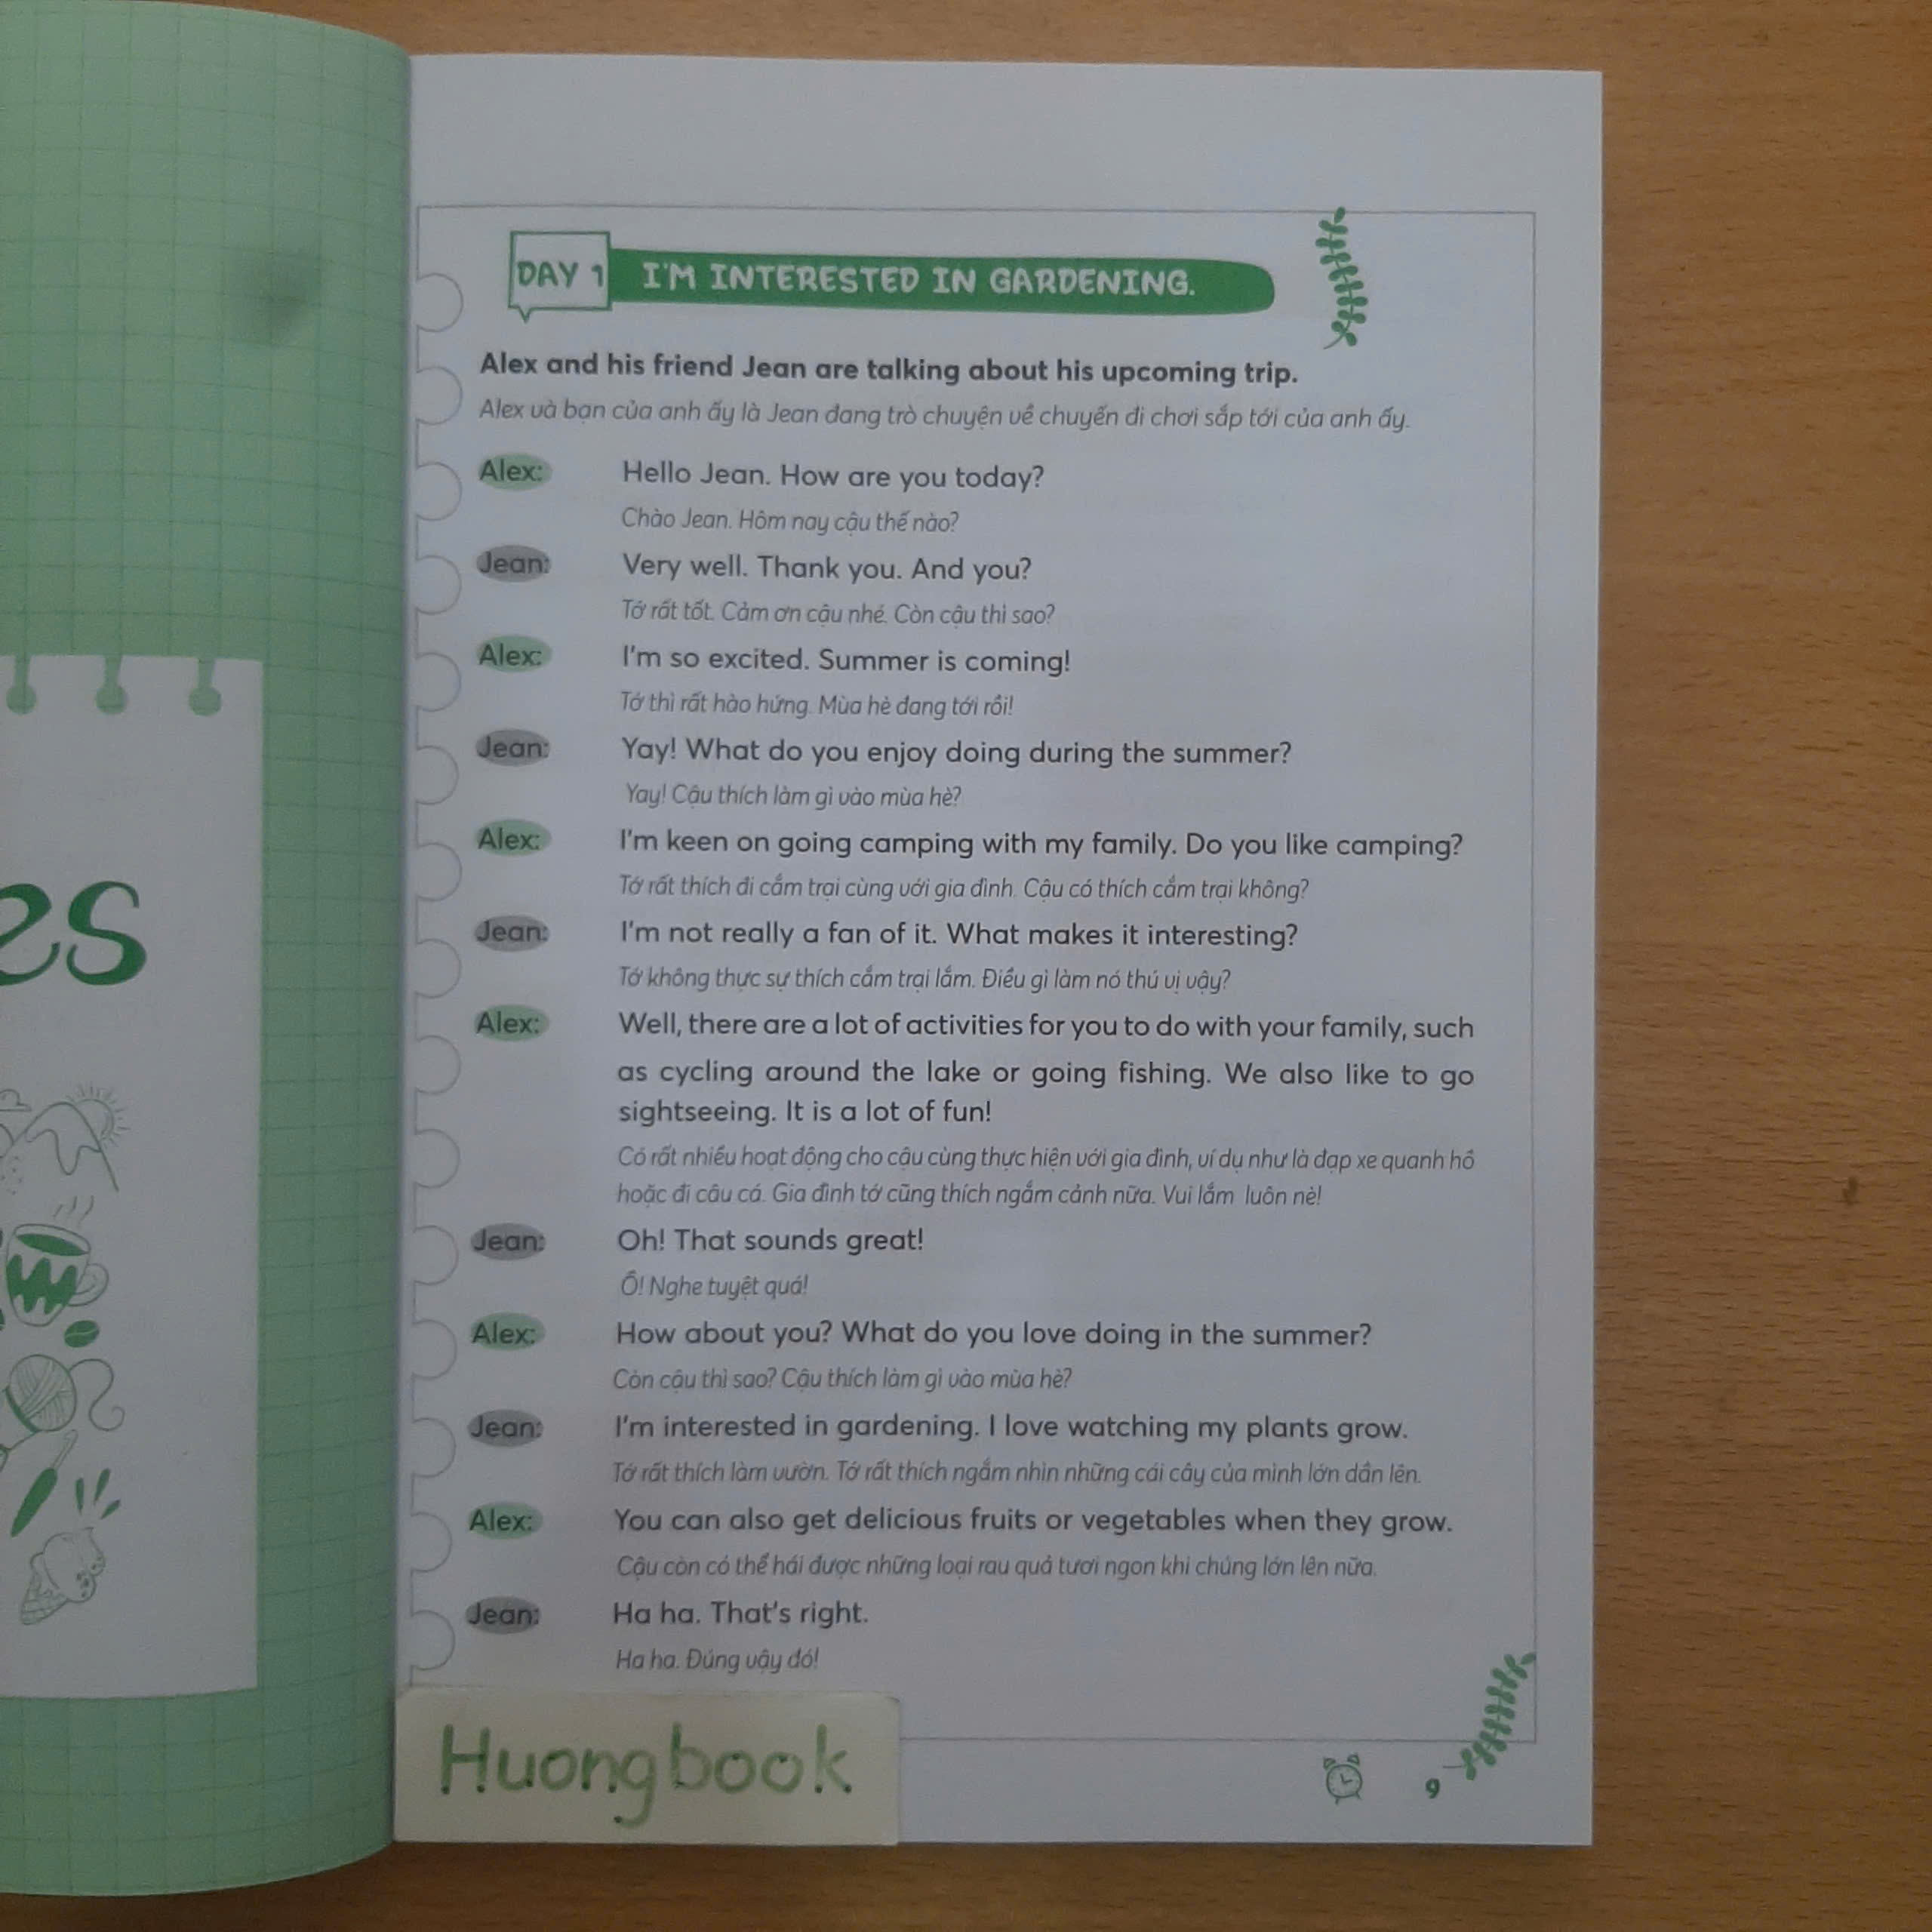 DAY 1 I'M INTERESTED IN GARDENING.
Alex and his friend Jean are talking about his upcoming trip.
Alex và bạn của anh ấy là Jean đang trò chuyện về chuyến đi chơi sắp tới của anh ấy.
Alex: Hello Jean. How are you today?
Chào Jean. Hôm nay cậu thế nào?
Jean: Very well. Thank you. And you?
Tớ rất tốt. Cảm ơn cậu nhé. Còn cậu thì sao?
Alex: I'm so excited. Summer is coming!
Tớ thì rất hào hứng. Mùa hè đang tới rồi!
Jean: Yay! What do you enjoy doing during the summer?
Yay! Cậu thích làm gì vào mùa hè?
Alex: I'm keen on going camping with my family. Do you like camping?
Tớ rất thích đi cắm trại cùng với gia đình. Cậu có thích cắm trại không?
Jean: I'm not really a fan of it. What makes it interesting?
Tớ không thực sự thích cắm trại lắm. Điều gì làm nó thú vị vậy?
Alex: Well, there are a lot of activities for you to do with your family, such
as cycling around the lake or going fishing. We also like to go
sightseeing. It is a lot of fun!
Có rất nhiều hoạt động cho cậu cùng thực hiện với gia đình, ví dụ như là đạp xe quanh hồ
hoặc đi câu cá. Gia đình tớ cũng thích ngắm cảnh nữa. Vui lắm luôn nè!
Jean: Oh! That sounds great!
Ồ! Nghe tuyệt quá!
Alex: How about you? What do you love doing in the summer?
Còn cậu thì sao? Cậu thích làm gì vào mùa hè?
Jean: I'm interested in gardening. I love watching my plants grow.
Tớ rất thích làm vườn. Tớ rất thích ngắm nhìn những cái cây của mình lớn dần lên.
Alex: You can also get delicious fruits or vegetables when they grow.
Cậu còn có thể hái được những loại rau quả tươi ngon khi chúng lớn lên nữa.
Jean: Ha ha. That's right.
Ha ha. Đúng vậy đó!
Huongbook
9